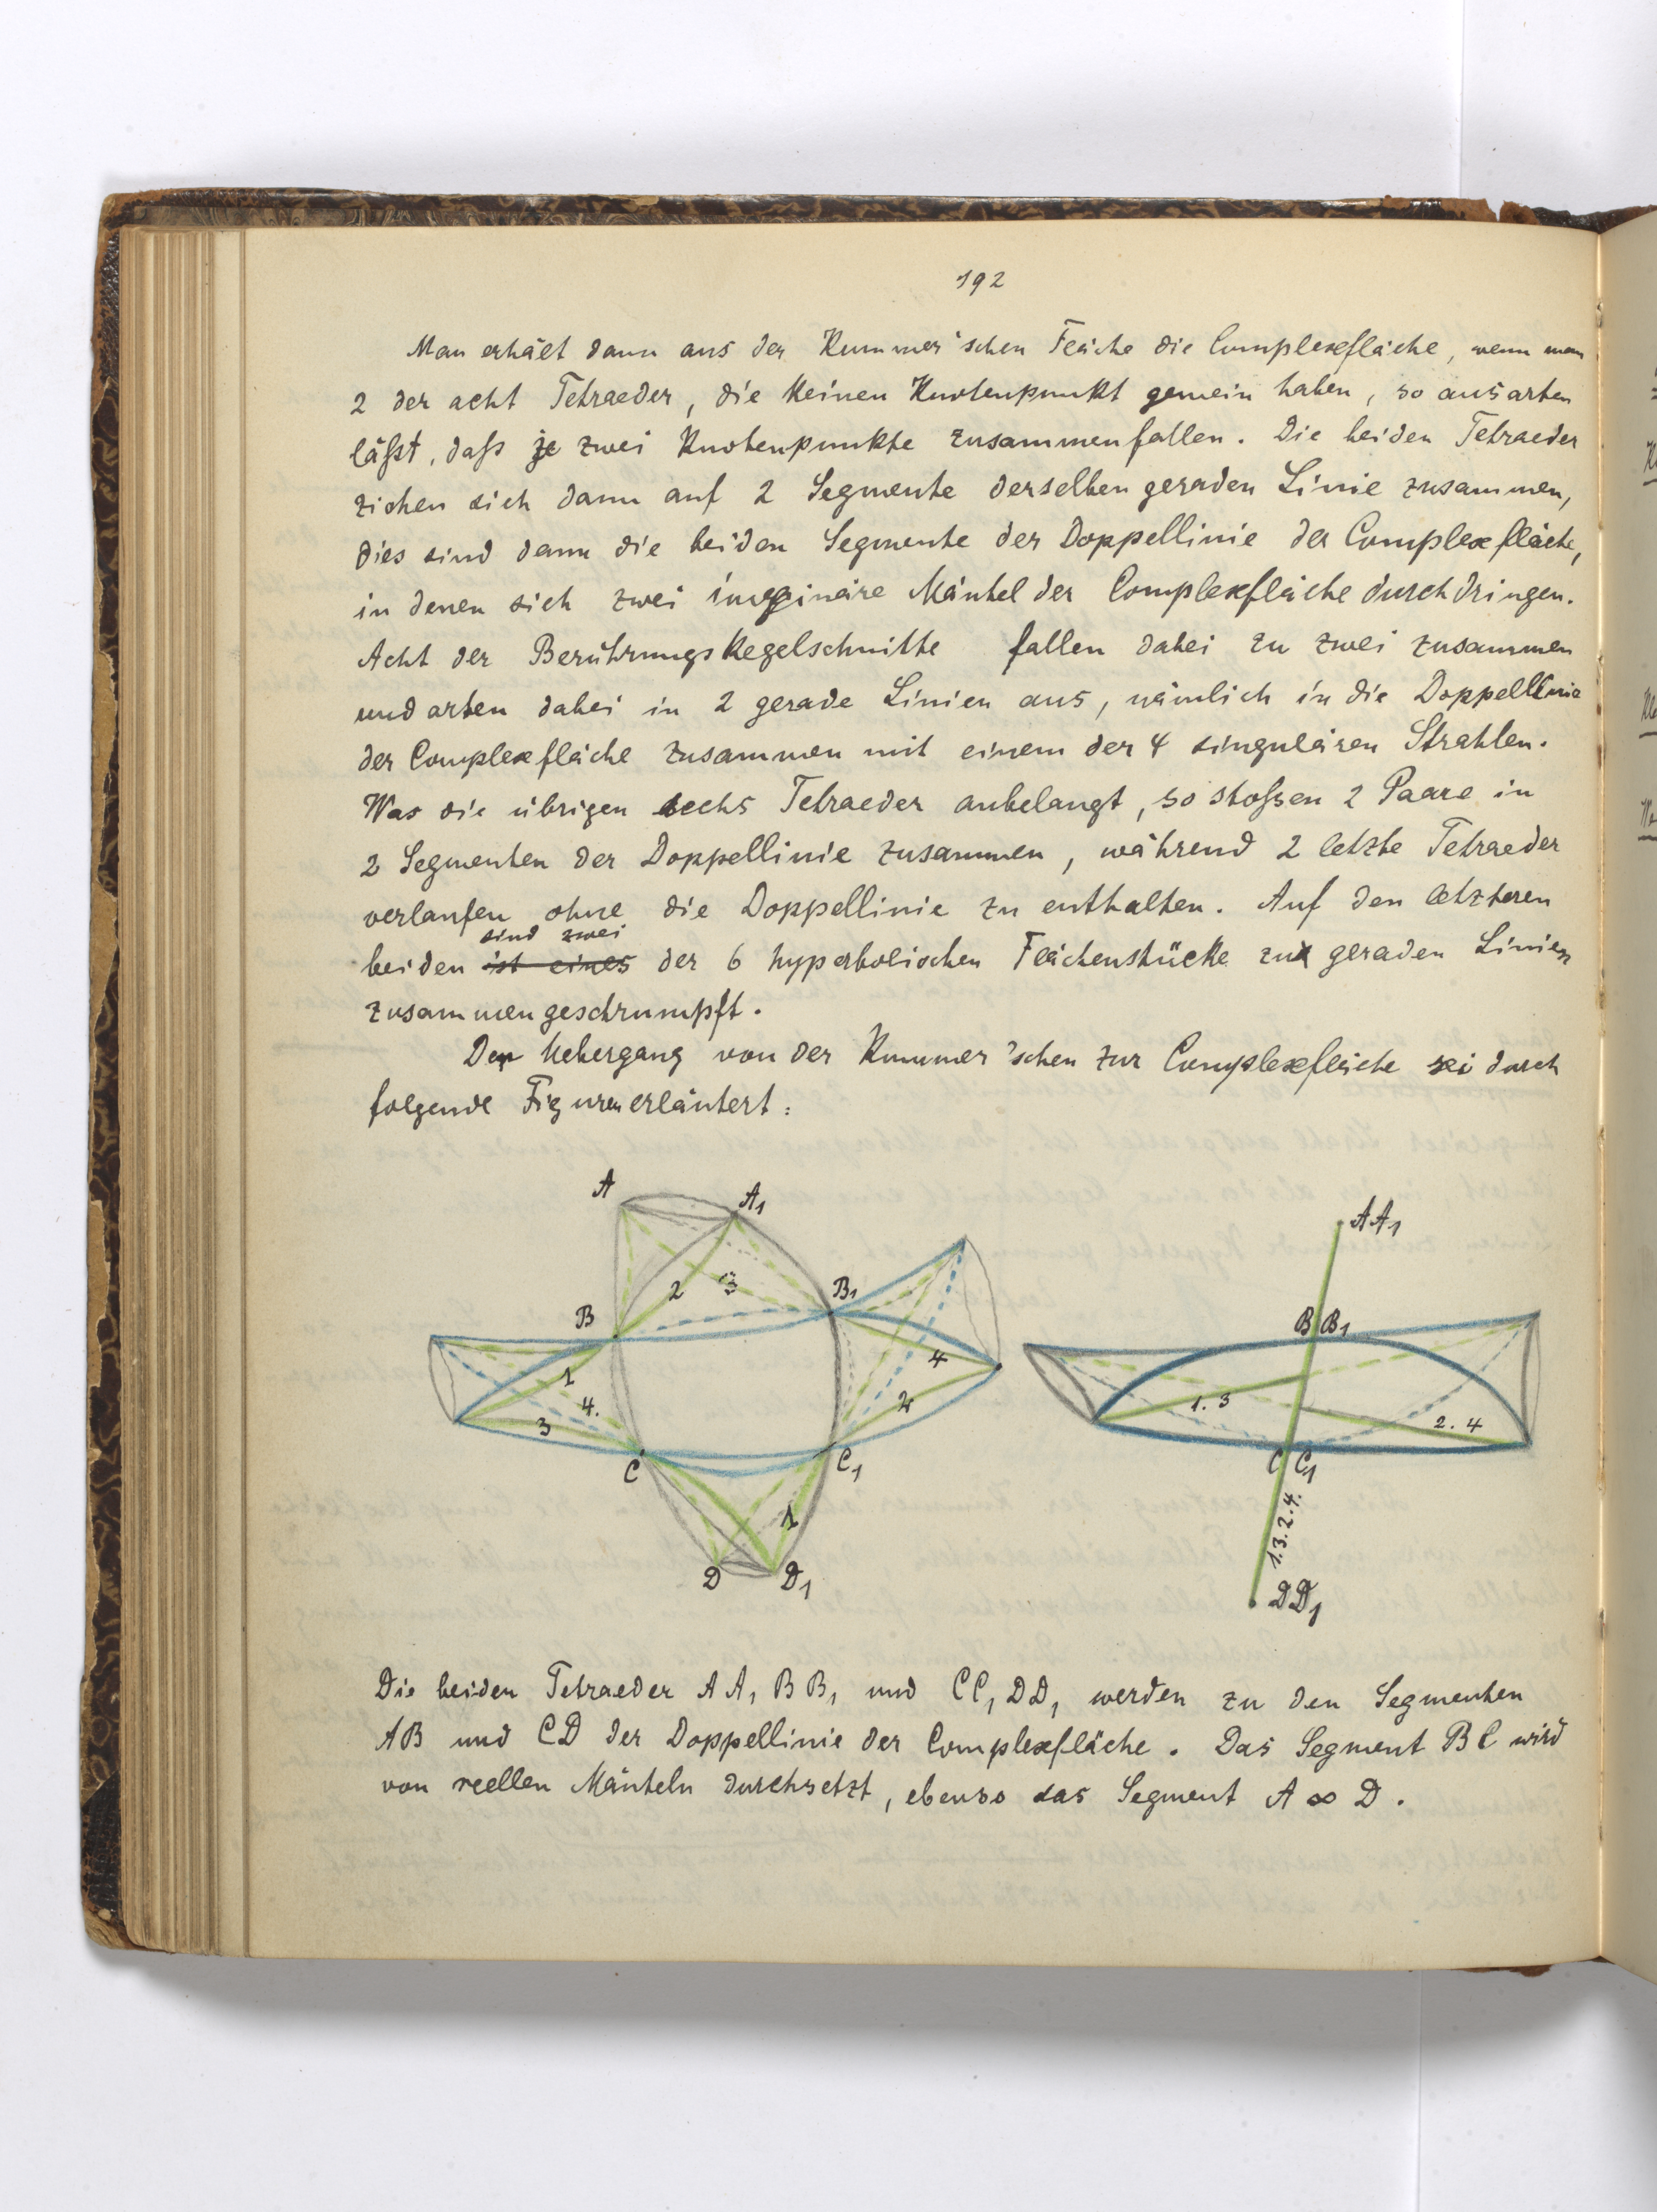 192
Man erhält dann aus der Kummer'schen Fläche die Complexfläche, wenn man
2 der acht Tetraeder, die keinen Knotenpunkt gemein haben, so ausarten
läßt, daß je zwei Knotenpunkte zusammenfallen. Die beiden Tetraeder
ziehen sich dann auf 2 Segmente derselben geraden Linie zusammen,
dies sind dann die beiden Segmente der Doppellinie der Complexfläche,
in denen sich zwei imaginäre Mäntel der Complexfläche durchdringen.
Acht der Berührungskegelschnitte fallen dabei zu zwei zusammen
und arten dabei in 2 gerade Linien aus, nämlich in die Doppellinie
der Complexfläche zusammen mit einem der 4 singulären Strahlen.
Was die übrigen sechs Tetraeder anbelangt, so stoßen 2 Paare in
2 Segmenten der Doppellinie zusammen, während 2 letzte Tetraeder
verlaufen ohne die Doppellinie zu enthalten. Auf den letzteren
sind zwei
beiden ist eines der 6 hyperbolischen Flächenstücke zu geraden Linien
zusammengeschrumpft.
Der Uebergang von der Kummer'schen zur Complexfläche sei durch
folgende Figuren erläutert:
A A1
2 3
B B1
1 4
4. 2
3
C C1
1
D D1
AA1
B B1
1.3 2.4
C C1
1.3.2.4.
DD1
Die beiden Tetraeder AA1 BB1 und CC1 DD1 werden zu den Segmenten
AB und CD der Doppellinie der Complexfläche. Das Segment BC wird
von reellen Mänteln durchsetzt, ebenso das Segment A ∞ D.